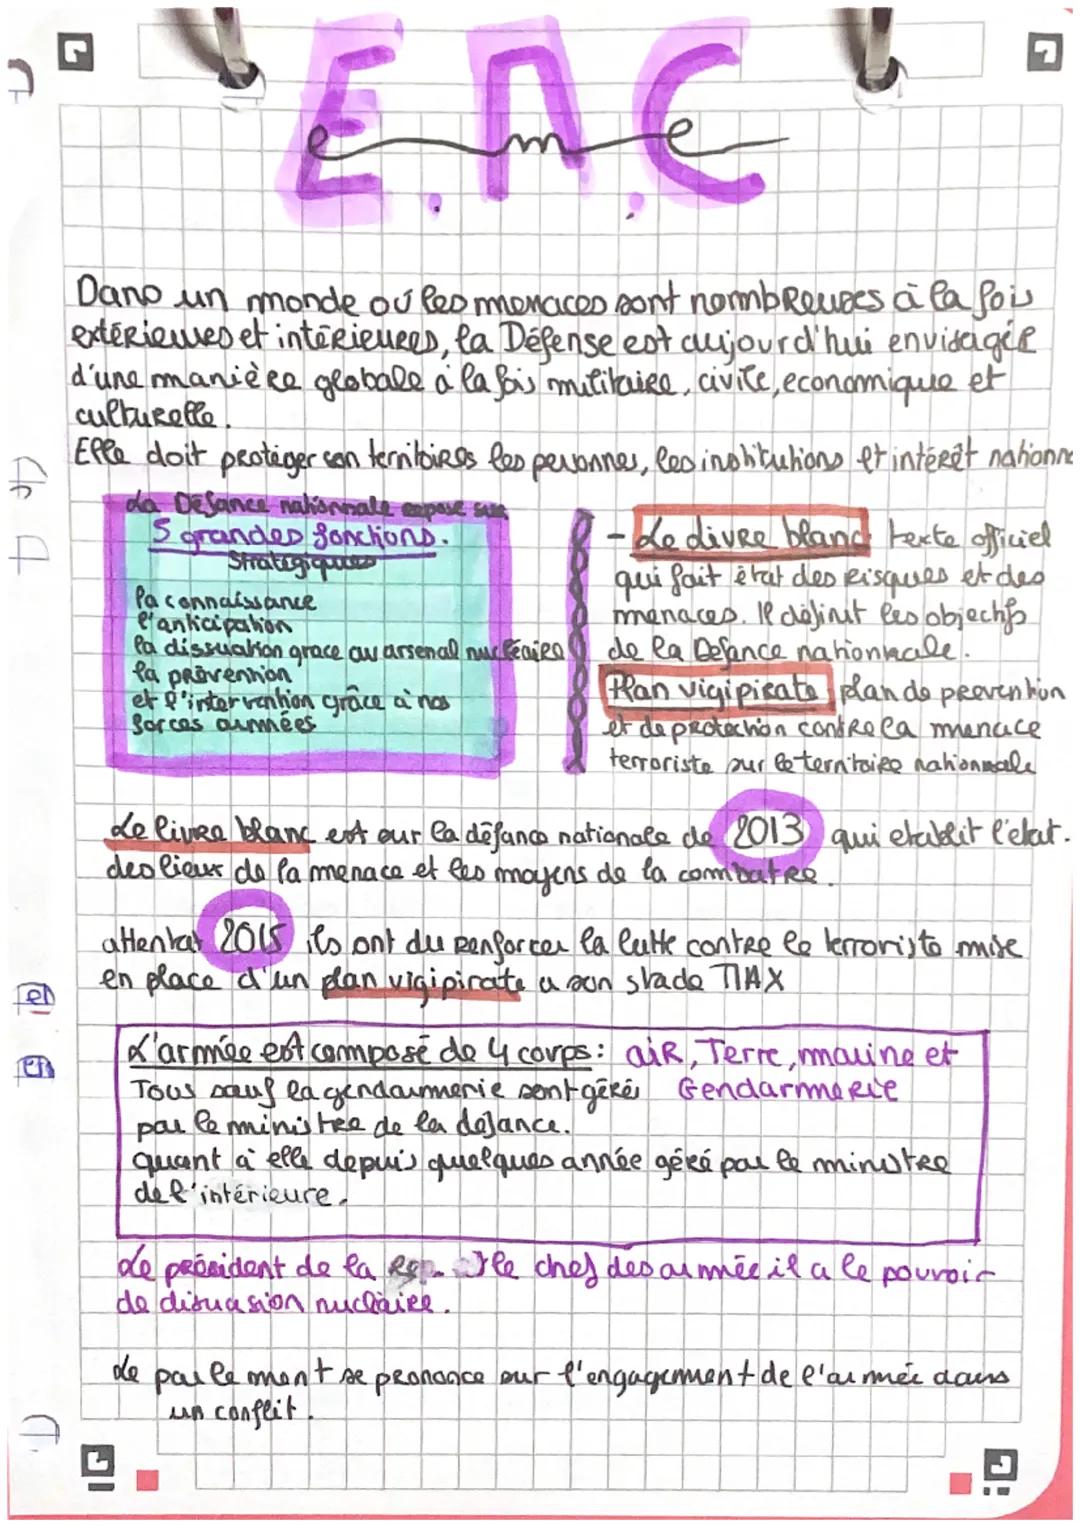 E.M.C
e m c
Dans un monde où les menaces sont nombreuses à la fois
extérieures et intérieures, la Défense est aujourd'hui envisagée
d'une manière globale à la fois militaire, civile, economique et
culturelle.
Elle doit protéger son territoires les personnes, les institutions et intérêt nationa
La Défance nationnale repose sur
5 grandes fonctions.
Stratégiques
la connaissance
l'anticipation
la dissuation grace au arsenal nucléaire
la prévention
et l'intervention grâce à nos
forces armées
- Le livre blanc texte officiel
qui fait état des risques et des
menaces. Il définit les objectifs
de la Défance nationnale.
Plan vigipirate plan de prevention
et de protection contre la menace
terroriste sur le territoire nationnale
Le livre blanc est sur la défance nationale de 2013 qui etablit l'etat.
des lieux de la menace et les moyens de la combatre.
attentat 2015 ils ont du renforcer la lutte contre le terroriste mise
en place d'un plan vigipirate a son stade MAX
L'armée est composé de 4 corps: aiR, Terre, marine et
Gendarmerie
Tous sauf la gendarmerie sont gérés
par le ministre de la défance.
quant à elle depuis quelques année géré par le ministre
de l'intérieure.
Le président de la Rep. le chef des armée il a le pouvoir
de disuasion nucléaire.
Le parlement se prononce sur l'engagement de l'armée dans
un conflit.